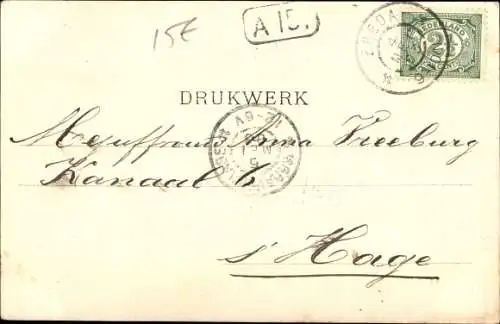 15€
A 15.
BREDA
NEDERLAND
2½
DRUKWERK
Mejuffrouw Anna Vreeburg
Kanaal 6
s' Hage